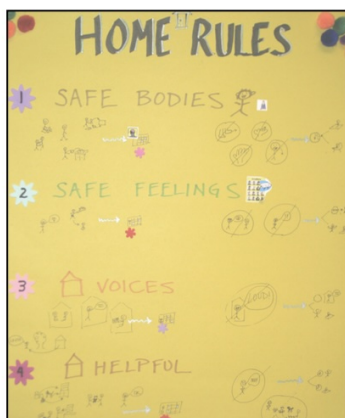 HOME RULES
1 SAFE BODIES
2 SAFE FEELINGS
3 VOICES
4 HELPFUL